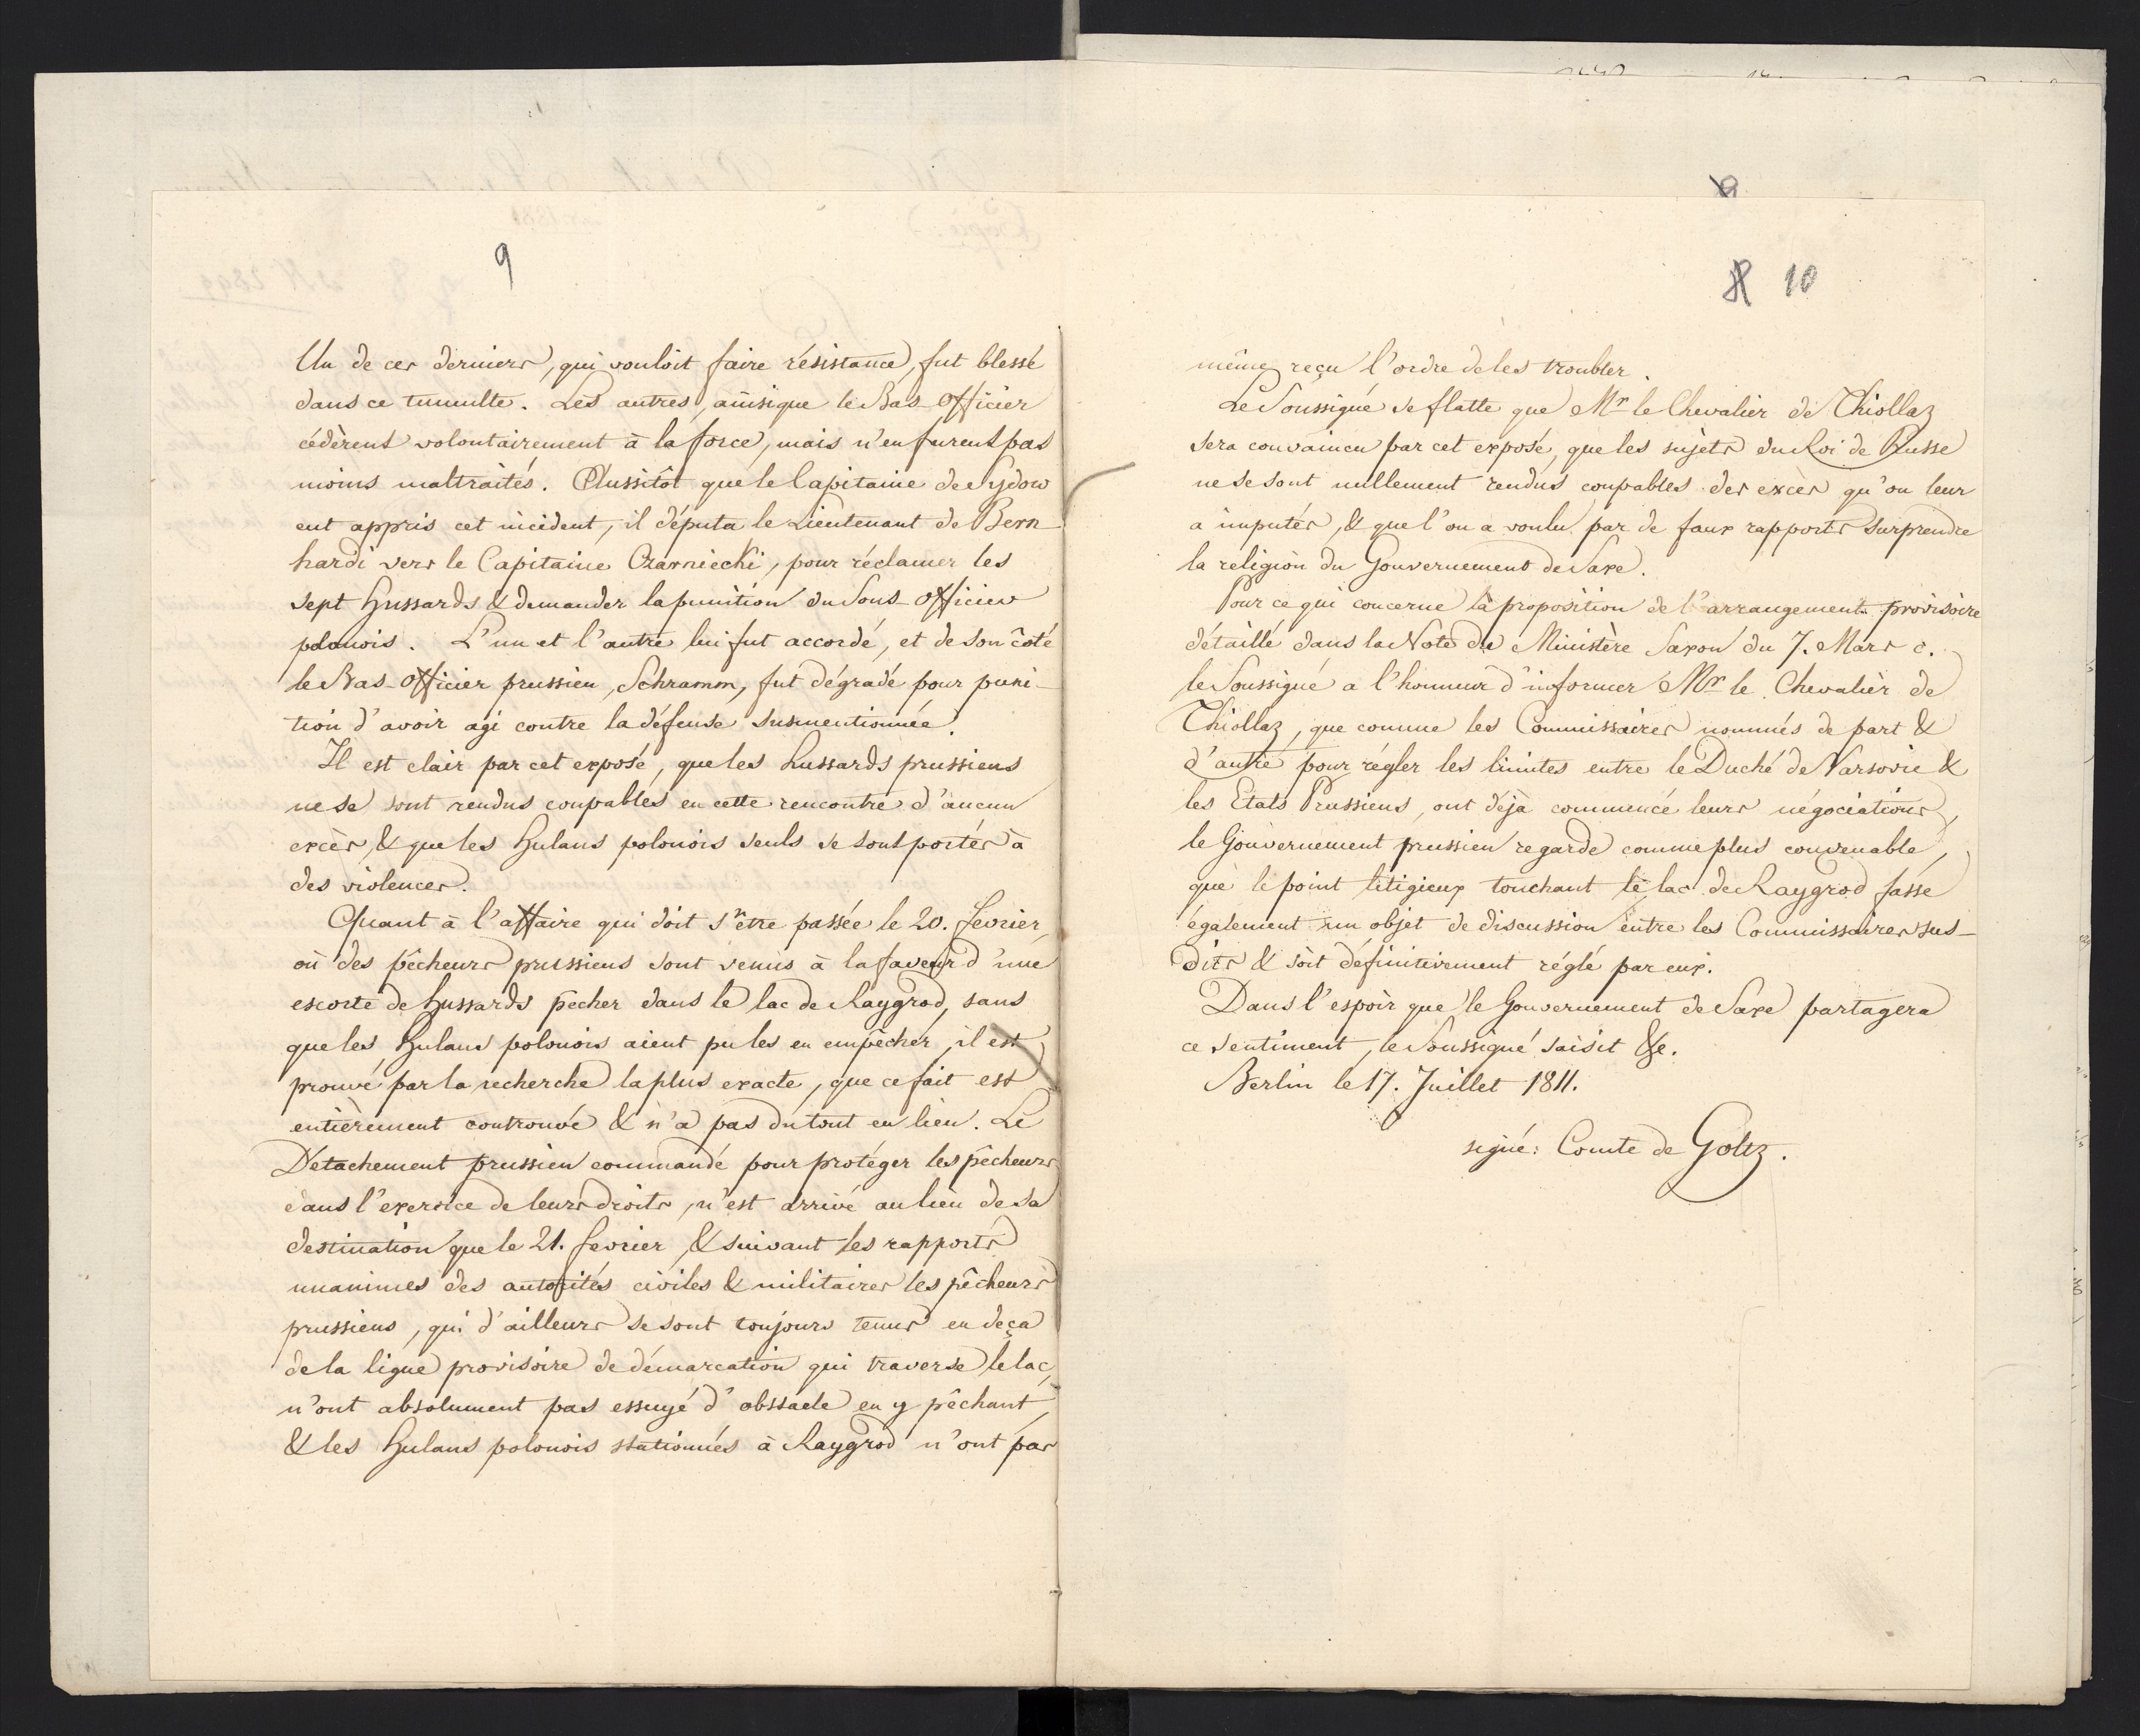 9
Un de ces derniers, qui vouloit faire résistance, fut blessé
dans ce tumulte. Les autres, ainsique le Bas-Officier
cédèrent volontairement à la force, mais n'en furent pas
moins maltraités. Aussitôt que le Capitaine de Sydow
eut appris cet incident, il députa le Lieutenant de Bern-
hardi vers le Capitaine Czarniecki, pour réclamer les
sept Hussards & demander la punition du Sous-Officier
polonois. L'un et l'autre lui fut accordé, et de son côté
le Bas-Officier prussien, Schramm, fut dégradé pour puni-
tion d'avoir agi contre la défense susmentionnée.
Il est clair par cet exposé, que les hussards prussiens
ne se sont rendus coupables en cette rencontre d'aucun
excès, & que les Hulans polonois seuls se sont portés à
des violences.
Quant à l'affaire qui doit s'être passée le 20. fevrier,
où des pêcheurs prussiens sont venus à la faveur d'une
escorte de hussards pêcher dans le lac de Raygrod, sans
que les Hulans polonois aient pu les en empêcher, il est
prouvé par la recherche la plus exacte, que ce fait est
entièrement controuvé & n'a pas du tout eu lieu. Le
Détachement prussien commandé pour protéger les pêcheurs
dans l'exercice de leurs droits, n'est arrivé au lieu de sa
destination que le 21. fevrier, & suivant les rapports
unanimes des autorités civiles & militaires les pêcheurs
prussiens, qui d'ailleurs se sont toujours tenus en deça
de la ligne provisoire de démarcation qui traverse le lac,
n'ont absolument pas essuyé d'obstacle en y pêchant,
& les Hulans polonois stationnés à Raygrod n'ont pas
10
même reçu l'ordre de les troubler.
Le Soussigné se flatte que Mr le Chevalier de Thiollaz
sera convaincu par cet exposé, que les sujets du Roi de Prusse
ne se sont nullement rendus coupables des excès qu'on leur
a imputés, & que l'on a voulu par de faux rapports surprendre
la religion du Gouvernement de Saxe.
Pour ce qui concerne la proposition de l'arrangement provisoire
détaillé dans la Note du Ministère Saxon du 7. Mars c.
le Soussigné a l'honneur d'informer Mr le Chevalier de
Thiollaz, que comme les Commissaires nommés de part &
d'autre pour régler les limites entre le Duché de Varsovie &
les Etats Prussiens, ont déjà commencé leurs négociations,
le Gouvernement prussien regarde comme plus convenable,
que le point litigieux touchant le lac de Raygrod fasse
également un objet de discussion entre les Commissaires sus-
dits & soit définitivement réglé par eux.
Dans l'espoir que le Gouvernement de Saxe partagera
ce sentiment, le Soussigné saisit &c.
Berlin le 17. Juillet 1811.
signé: Comte de Goltz.